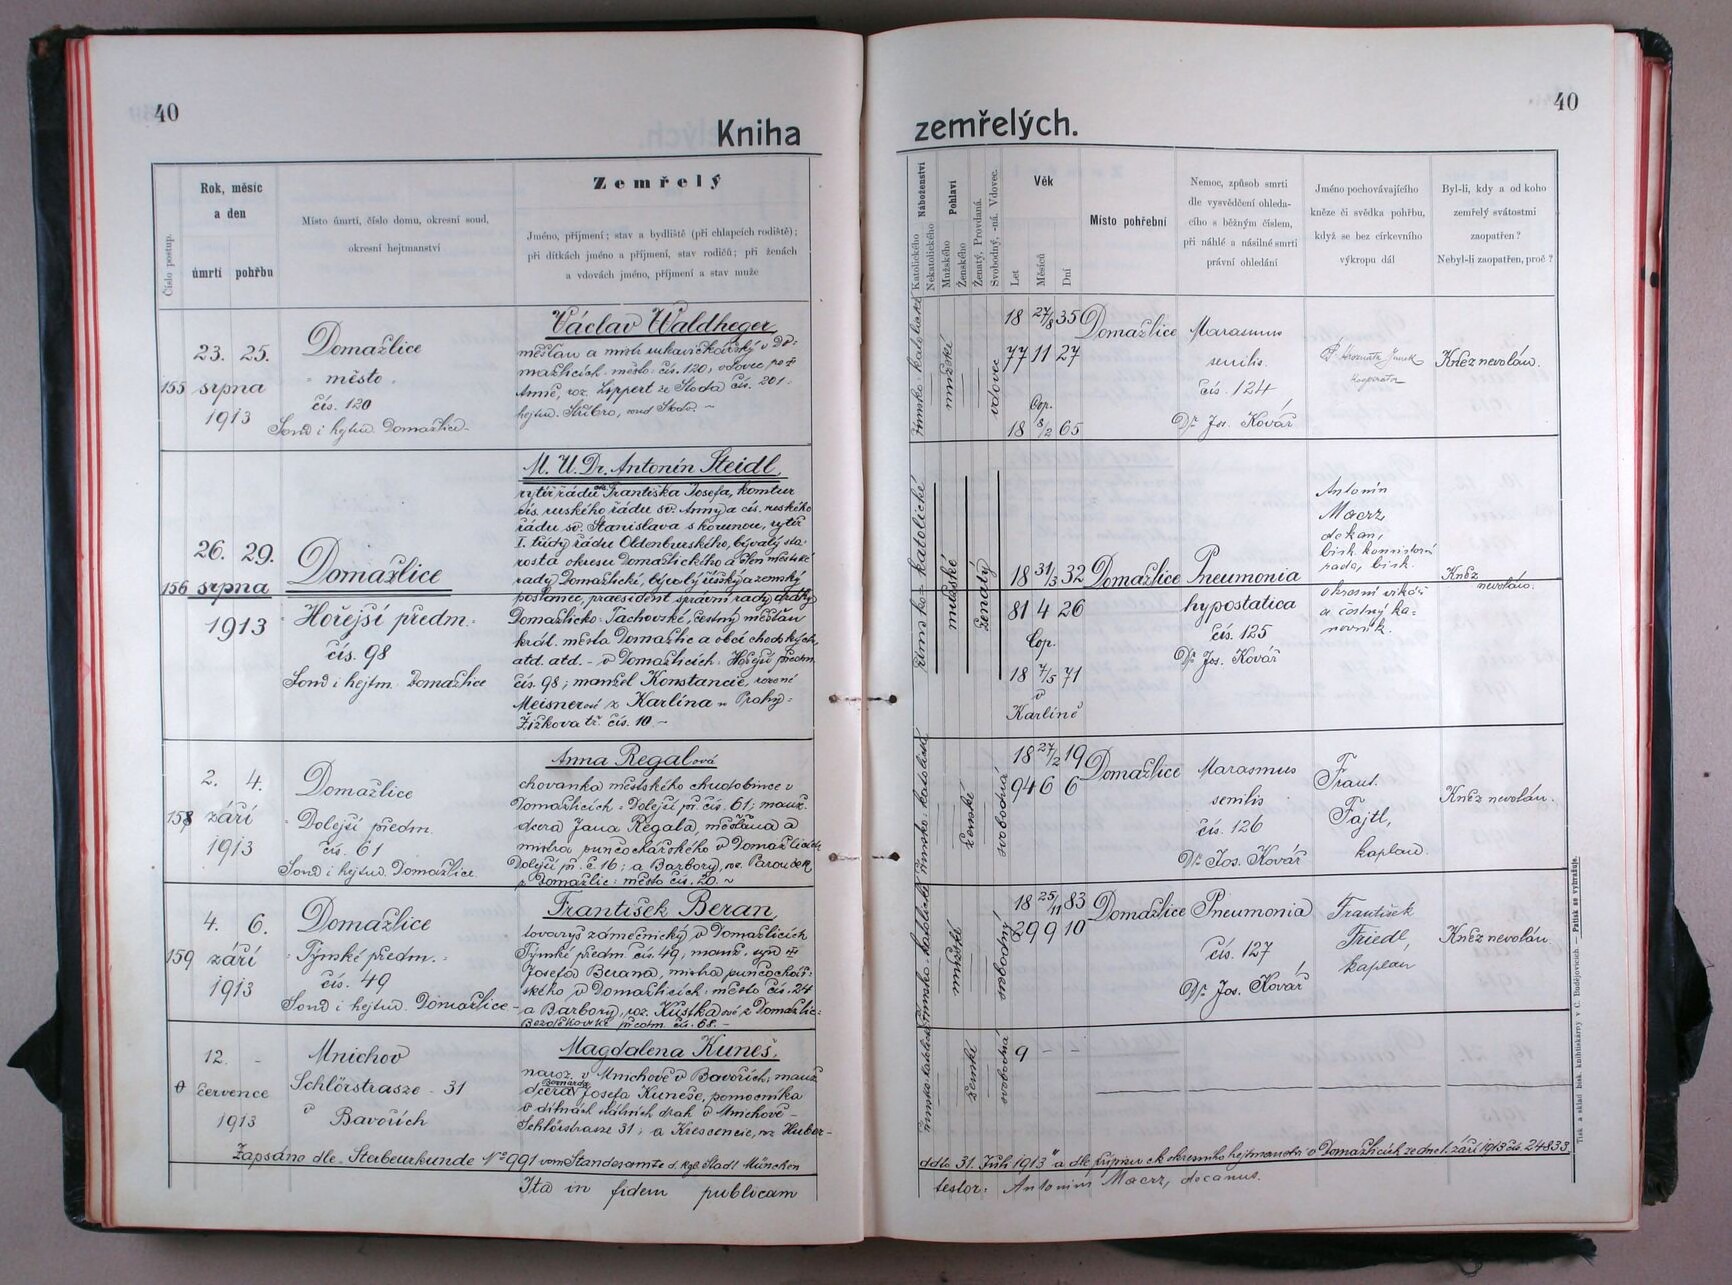 40
Kniha
Číslo postup.
Rok, měsíc
a den
úmrtí pohřbu
Místo úmrtí, číslo domu, okresní soud,
okresní hejtmanství
Zemřelý
Jméno, příjmení; stav a bydliště (při chlapcích rodiště);
při dítkách jméno a příjmení, stav rodičů; při ženách
a vdovách jméno, příjmení a stav muže
23. 25.
155 srpna
1913
Domažlice
město
čís. 120
Soud i hejtm. Domažlice
Václav Waldheger,
měšťan a mistr rukavičkářský v Do-
mažlicích město čís. 120, vdovec po
Anně, roz. Lippert ze Stoda čís. 201.
hejtm. Stříbro, soud Stod.
26. 29.
156 srpna
1913
Domažlice
Hořejší předm.
čís. 98
Soud i hejtm. Domažlice
M. U. Dr. Antonín Steidl,
rytíř řádu Františka Josefa, komtur
cís. ruského řádu sv. Anny a cís. ruského
řádu sv. Stanislava s korunou, rytíř
I. třídy řádu Oldenburského, bývalý sta-
rosta okresu Domažlického a člen městské
rady Domažlické, bývalý říšský a zemský
poslanec, praesident správní rady dráhy
Domažlicko-Tachovské, čestný měšťan
král. města Domažlic a obcí chodských,
atd. atd. - v Domažlicích Hořejší předm.
čís. 98; manžel Konstancie, rozené
Meisnerové z Karlína u Prahy
Žižkova tř. čís. 10.
2. 4.
158 září
1913
Domažlice
Dolejší předm.
čís. 61
Soud i hejtm. Domažlice.
Anna Regalová
chovanka městského chudobince v
Domažlicích Dolejší př. čís. 61; manž.
dcera Jana Regala, měšťana a
mistra punčochářského v Domažlicích
Dolejší př. č. 16; a Barbory, roz. Paroubek
z Domažlic město čís. 20.
4. 6.
159 září
1913
Domažlice
Týnské předm.
čís. 49
Soud i hejtm. Domažlice
František Beran,
tovaryš zámečnický v Domažlicích
Týnské předm. čís. 49, manž. syn
Josefa Berana, mistra punčochář-
ského v Domažlicích město čís. 24
a Barbory, roz. Kustkaové z Domažlic
Bezděkovské předm. čís. 68.
12. -
0 července
1913
Mnichov
Schlörstrasze 31
v Bavořích
Magdalena Kuneš,
naroz. v Mnichově v Bavořích, manž.
dcera Bernarda Josefa Kuneše, pomocníka
v dílnách státních drah v Mnichově
Schlörstrasse 31; a Krescencie, roz. Huber
Zapsáno dle „Sterbeurkunde No 991 vom Standesamte d. kgl. Stadt München
Ita in fidem publicam
40
zemřelých.
Náboženství
Katolického
Nekatolického
Pohlaví
Mužského
Ženského
Ženatý, Provdaná.
Svobodný, -ná. Vdovec.
Věk
Let
Měsíců
Dní
Místo pohřební
Nemoc, způsob smrti
dle vysvědčení ohleda-
cího s běžným číslem,
při náhlé a násilné smrti
právní ohledání
Jméno pochovávajícího
kněze či svědka pohřbu,
když se bez církevního
výkropu dál
Byl-li, kdy a od koho
zemřelý svátostmi
zaopatřen?
Nebyl-li zaopatřen, proč?
římsko-katolické
mužské
vdovec
18 27/8 35
77 11 27
Cop.
18 8/2 65
Domažlice
Marasmus
senilis
čís. 124
Dr. Jos. Kovář
kooperátor
Kněz nevolán.
římsko-katolické
mužské
ženatý
18 31/3 32
81 4 26
Cop.
18 7/5 71
v
Karlíně
Domažlice
Pneumonia
hypostatica
čís. 125
Dr. Jos. Kovář
Antonín
Maerz,
dekan,
bisk. konsistorní
rada, bisk.
okresní vikář
a čestný ka-
novník.
Kněz
nevolán.
římsko-katolické
ženské
svobodná
18 27/2 19
94 6 6
Domažlice
Marasmus
senilis
čís. 126
Dr. Jos. Kovář
Frant.
Fajtl,
kaplan.
Kněz nevolán.
římsko-katolické
mužské
svobodný
18 25/11 83
29 9 10
Domažlice
Pneumonia
čís. 127
Dr. Jos. Kovář
František
Friedl,
kaplan
Kněz nevolán
římsko-katolické
ženské
svobodná
9 - -
ddto 31. Juli 1913" a dle přípisu ck okresního hejtmanství v Domažlicích ze dne 1. září 1913 čís. 24833
testor: Antonius Maerz, decanus.
Tisk a sklad bisk. knihtiskárny v Č. Budějovicích. — Patisk se vyhražuje.